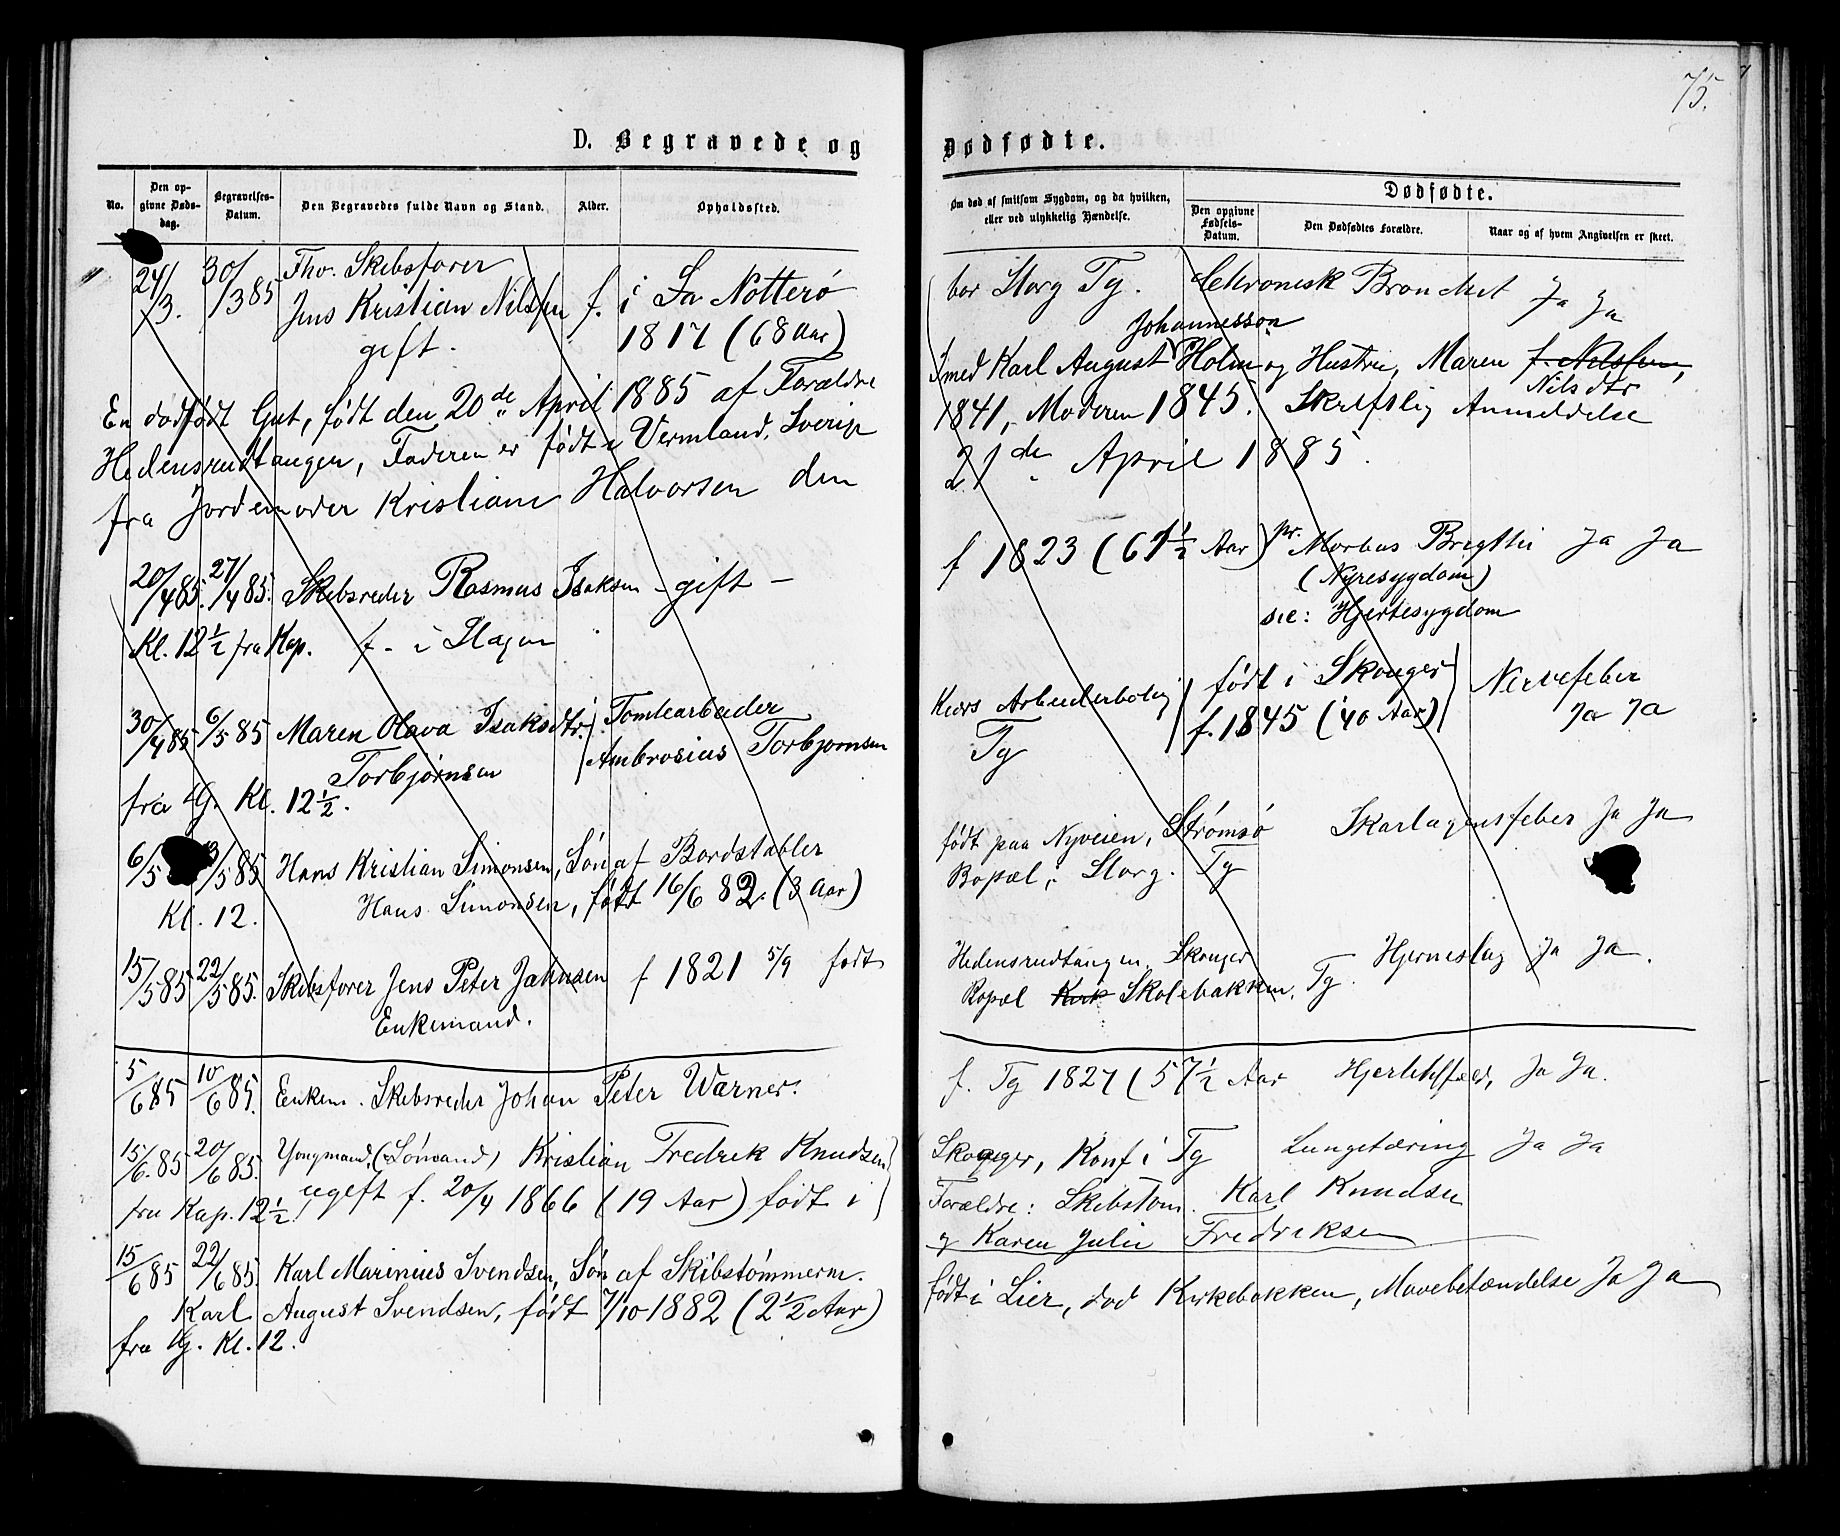 75.
D. Begravede og
Dødsfødte.
No.
Den opgivne Dødsdag.
Begravelses-Datum.
Den Begravedes fulde Navn og Stand.
Alder.
Opholdssted.
Om død af smitsom Sygdom, og da hvilken, eller ved ulykkelig Hændelse.
Dødfødte.
Den opgivne Fødsels-Datum.
Den Dødfødtes Forældre.
Naar og af hvem Angivelsen er skeet.
24/3. 30/3 85 Fhv. Skibsfører
Jens Kristian Nilsen f. i Nøtterø
gift. 1817 (68 Aar)
bor Storg Tg. Chronisk Bronchit Ja Ja
En dødfødt Gut, født den 20de April 1885 af Forældre
Johannesson
med Karl August Holm og Hustru, Maren f. Nilsen,
Nilsdtr
Hedensrudtangen, Faderen er født i Vermland, Sverige
1841, Moderen 1845. Skriftlig Anmeldelse
fra Jordemoder Kristiane Halvorsen den
21de April 1885.
20/4 85. 27/4 85. Skibsreder Rasmus Isaksen - gift -
Kl. 12 1/2 fra Kap. f. i Slagen
f 1823 (61 1/2 Aar) Morbus Brigthi Ja Ja
(Nyresygdom)
Hjertesygdom
30/4 85 6/5 85 Maren Olava Isaksdtr. Tomtearbeider
Torbjørnsen Ambrosius Torbjørnsen
fra G. Kl. 12 1/2.
Kiørs Arbeiderbolig født i Skouger Nervefeber
Tg f. 1845 (40 Aar) Ja Ja
6/5 13/5 85 Hans Kristian Simonsen, Søn af Bordstabler
Kl. 12. Hans Simonsen, født 16/6 82. (3 Aar)
født paa Nyveien, Strømsø Skarlagensfeber Ja Ja
Bopæl i Storg. Tg
15/5 85 22/5 85. Skibsfører Jens Peter Jahnsen f 1821 5/9 født
Enkemand.
Hedensrudtangen, Skouger Hjerneslag Ja Ja.
Bopæl Kirk Skolebakken, Tg.
5/6 85 10/6 85. Enkem. Skibsreder Johan Peter Warner.
f. Tg 1827 (57 1/2 Aar Hjertefeil, Ja Ja.
15/6. 85 20/6 85. Yngmand, (Sømand) Kristian Fredrik Knudsen
fra Kap. 12 1/2 ugift f. 20/4 1866 (19 Aar) født i
Skouger, Konf i Tg Lungetæring Ja Ja
Forældre: Skibstøm. Karl Knudsen
og Karen Julie Fredriksen
15/6 85 22/6 85. Karl Marinius Svendsen, Søn af Skibstømmerm.
Karl August Svendsen, født 7/10 1882 (2 1/2 Aar)
fra G. Kl. 12.
født i Lier, død Kirkebakken, Mavebetændelse Ja Ja